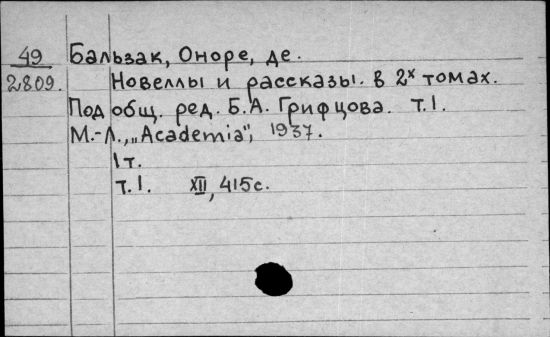 49 Бальзак, Оноре, де.
2809. Новеллы и рассказы. в 2х томах.
Под общ. ред. Б.А. Грифцова. т.1.
М.-Л., „Academia", 1937.
1т.
т.1. XII, 415с.